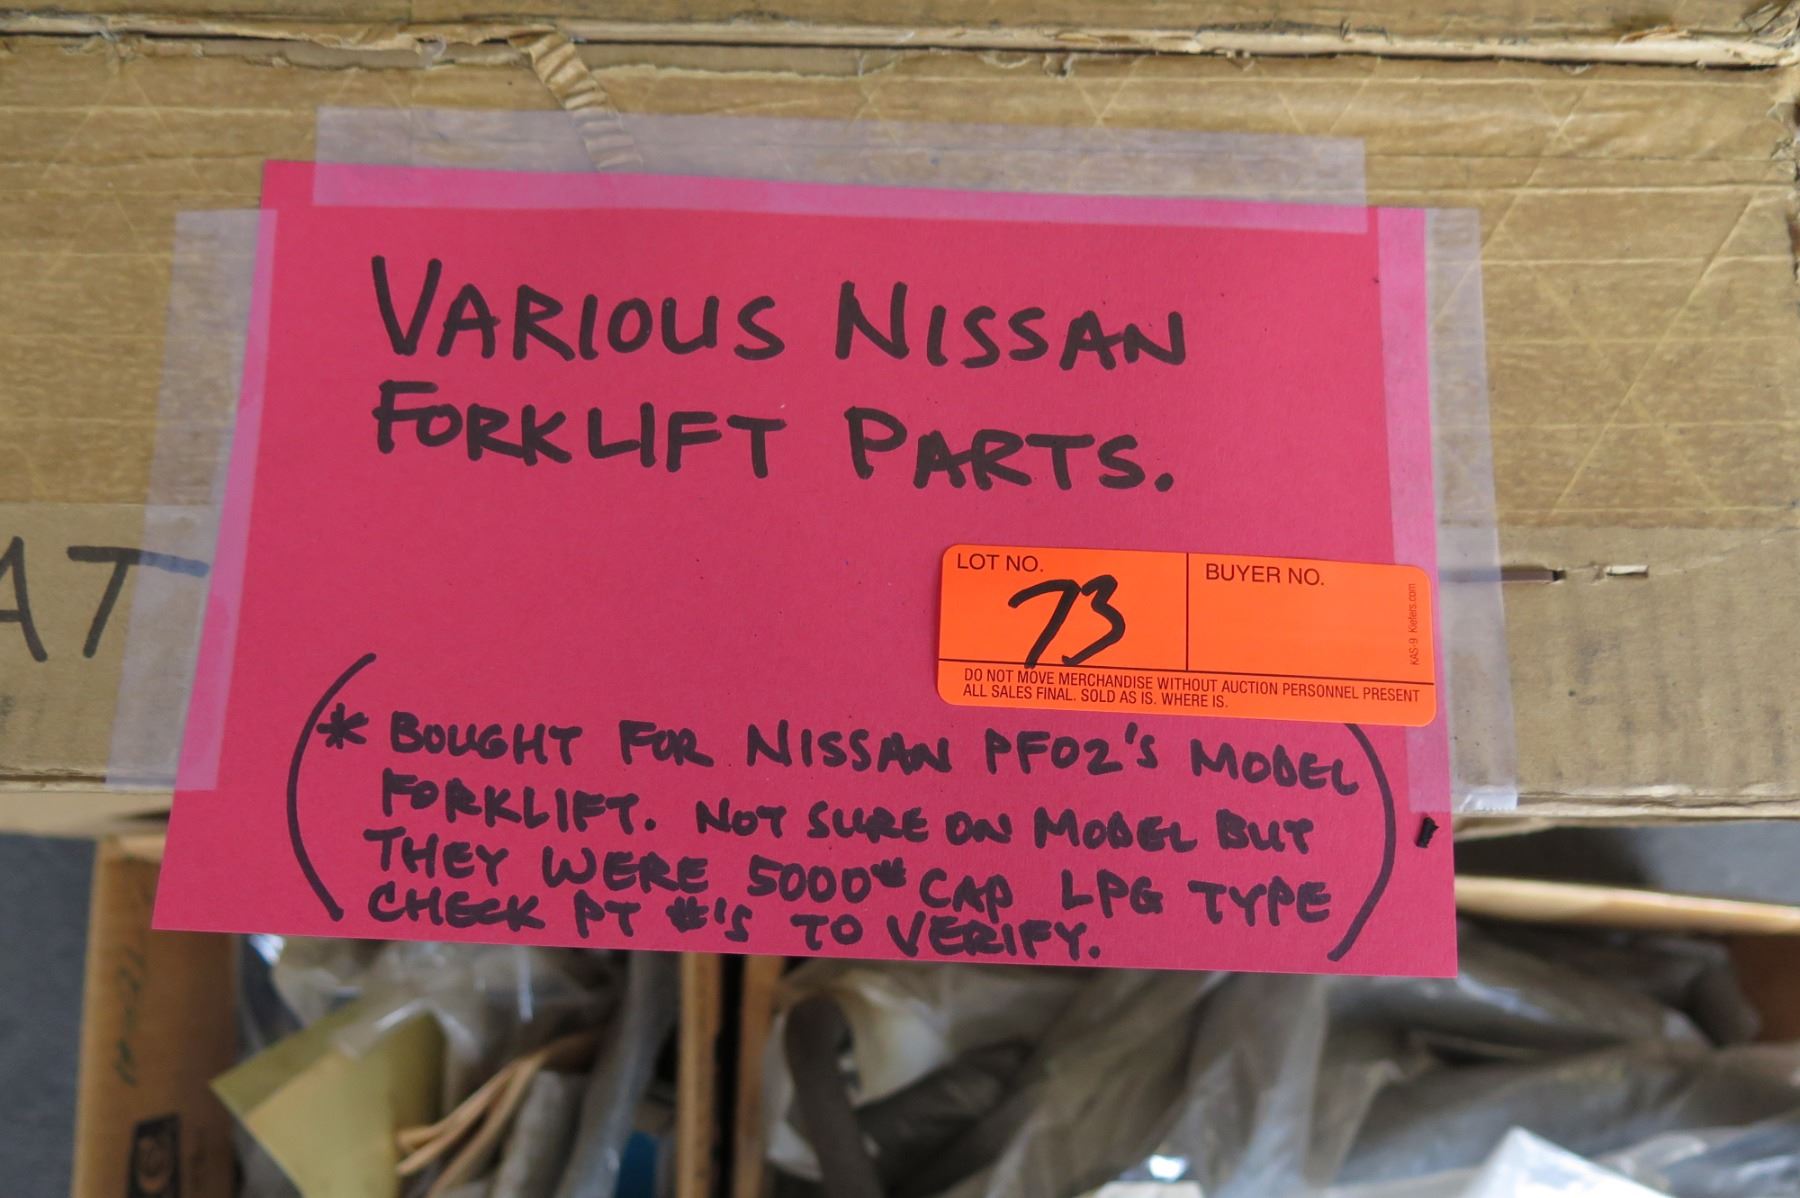 VARIOUS NISSAN
FORKLIFT PARTS.
AT
LOT NO.
73
BUYER NO.
KAS-9 Kiefers.com
DO NOT MOVE MERCHANDISE WITHOUT AUCTION PERSONNEL PRESENT
ALL SALES FINAL. SOLD AS IS. WHERE IS.
(* BOUGHT FOR NISSAN PF02'S MODEL
FORKLIFT. NOT SURE ON MODEL BUT
THEY WERE 5000# CAP LPG TYPE
CHECK PT #'S TO VERIFY.)